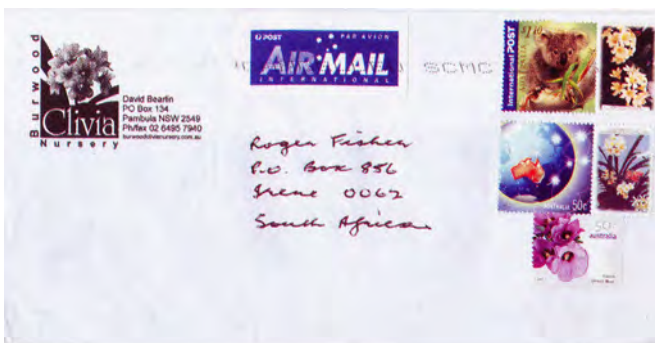 Burwood
Clivia
Nursery
David Bearlin
PO Box 134
Pambula NSW 2549
Ph/fax 02 6495 7940
burwoodclivianursery.com.au
POST
PAR AVION
AIR MAIL
INTERNATIONAL
SCMC
Roger Fisher
P.O. Box 856
Irene 0062
South Africa
International POST
AUSTRALIA
$1.10
AUSTRALIA 50c
50c
australia